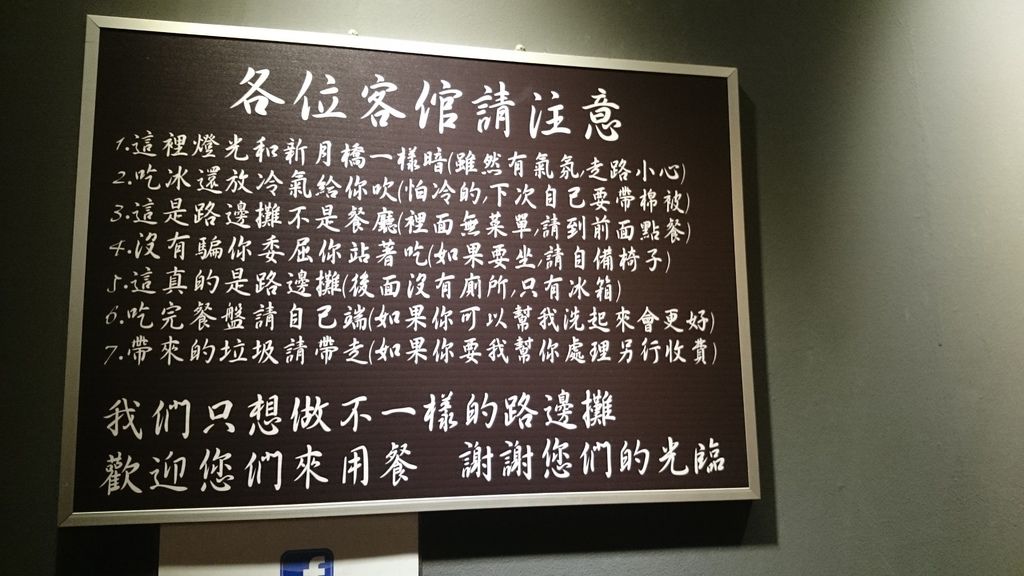 各位客倌請注意
1.這裡燈光和新月橋一樣暗(雖然有氣氛,走路小心)
2.吃冰還放冷氣給你吹(怕冷的,下次自己要帶棉被)
3.這是路邊攤不是餐廳(裡面無菜單,請到前面點餐)
4.沒有騙你委屈你站著吃(如果要坐,請自備椅子)
5.這真的是路邊攤(後面沒有廁所,只有冰箱)
6.吃完餐盤請自己端(如果你可以幫我洗起來會更好)
7.帶來的垃圾請帶走(如果你要我幫你處理另行收費)
我們只想做不一樣的路邊攤
歡迎您們來用餐 謝謝您們的光臨
f